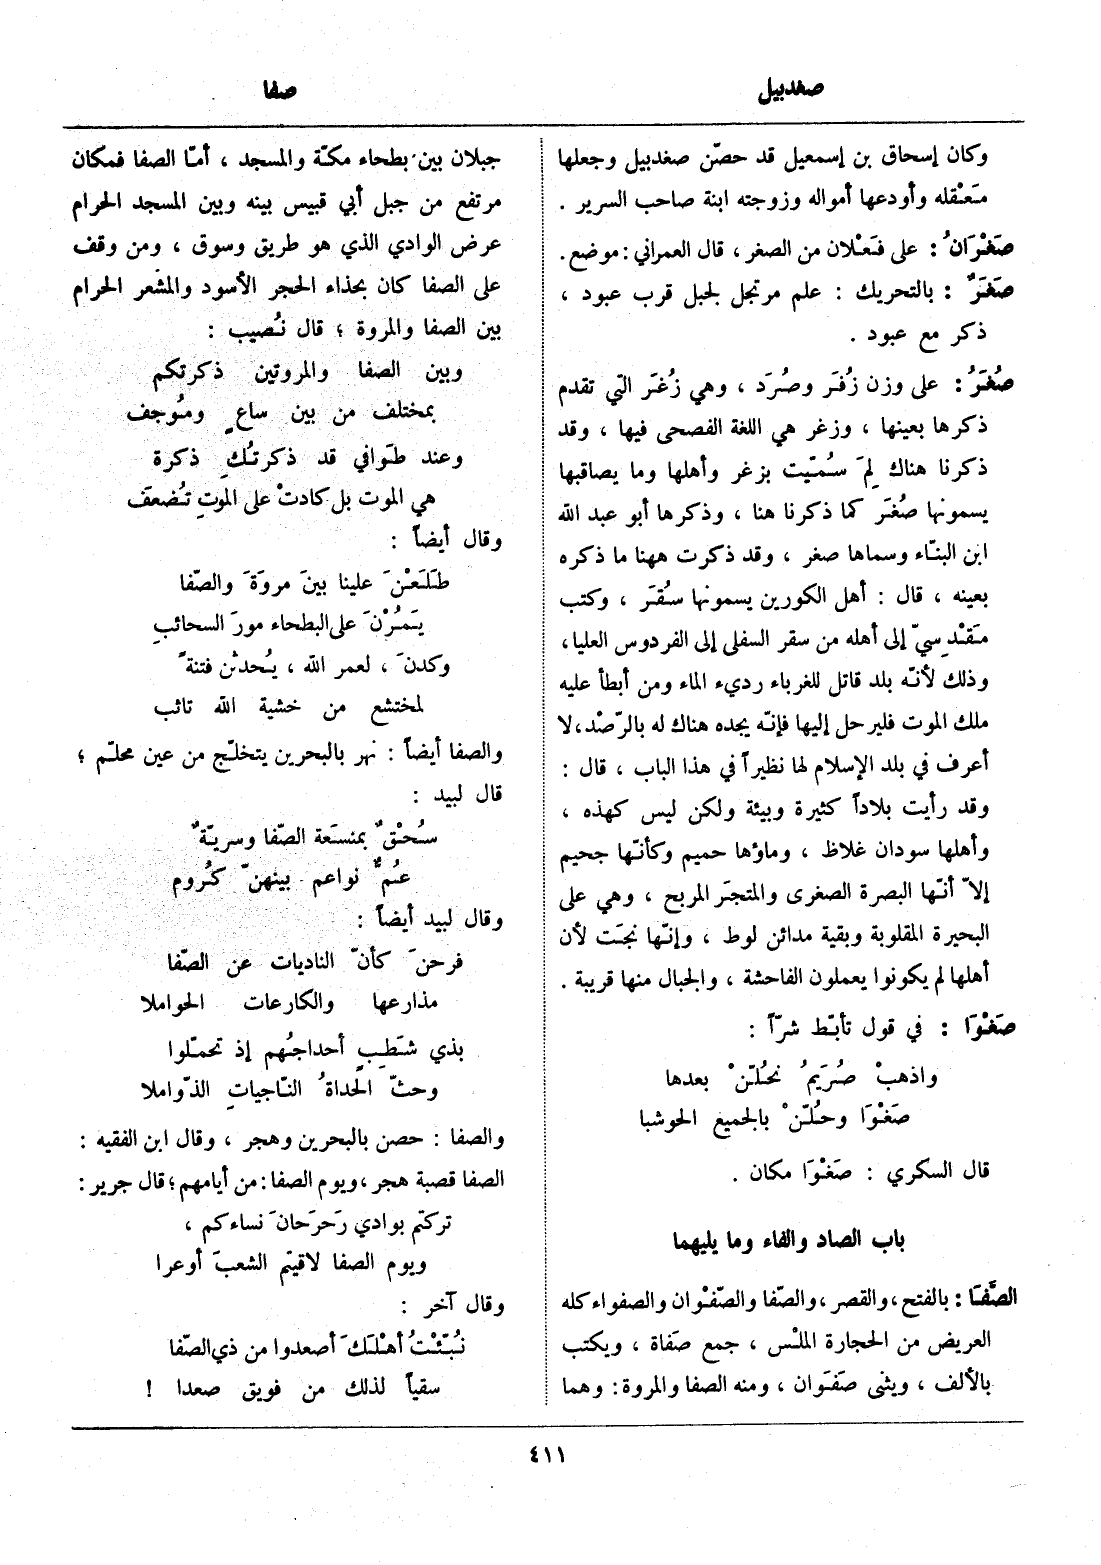 صغدبيل
صفا
وكان إسحاق بن إسمعيل قد حصّن صغدبيل وجعلها
مَعْقله وأودعها أمواله وزوجته ابنة صاحب السرير .
صَغْرَانُ : على فَعْلان من الصغر ، قال العمراني : موضع .
صَغَرٌ : بالتحريك : علم مرتجل لجبل قرب عبود ،
ذكر مع عبود .
صُغَرُ : على وزن زُفَر وصُرَد ، وهي زُغَر التي تقدم
ذكرها بعينها ، وزغر هي اللغة الفصحى فيها ، وقد
ذكرنا هناك لِمَ سُمّيت بزغر وأهلها وما يصاقبها
يسمونها صُغَر كما ذكرنا هنا ، وذكرها أبو عبد الله
ابن البنّاء وسماها صغر ، وقد ذكرت ههنا ما ذكره
بعينه ، قال : أهل الكورين يسمونها سُقَر ، وكتب
مَقْدِسيّ إلى أهله من سقر السفلى إلى الفردوس العليا ،
وذلك لأنّه بلد قاتل للغرباء رديء الماء ومن أبطأ عليه
ملك الموت فليرحل إليها فإنّه يجده هناك له بالرّصْد ، لا
أعرف في بلد الإسلام لها نظيراً في هذا الباب ، قال :
وقد رأيت بلاداً كثيرة وبيئة ولكن ليس كهذه ،
وأهلها سودان غلاظ ، وماؤها حميم وكأنّها جحيم
إلاّ أنّها البصرة الصغرى والمتجَر المربح ، وهي على
البحيرة المقلوبة وبقية مدائن لوط ، وإنّها نجَت لأن
أهلها لم يكونوا يعملون الفاحشة ، والجبال منها قريبة .
صَغْوَا : في قول تأبّط شرّاً :
واذهبْ صُرَيمُ نحُلّنْ بعدها
صَغْوَا وحُلّنْ بالجميع الحوشبا
قال السكري : صَغْوَا مكان .
باب الصاد والفاء وما يليهما
الصَّفَا : بالفتح ، والقصر ، والصّفا والصّفْوان والصفواء كله
العريض من الحجارة الملْس ، جمع صَفاة ، ويكتب
بالألف ، ويثنى صَفَوان ، ومنه الصفا والمروة : وهما
جبلان بين بطحاء مكّة والمسجد ، أمّا الصفا فمكان
مرتفع من جبل أبي قبيس بينه وبين المسجد الحرام
عرض الوادي الذي هو طريق وسوق ، ومن وقف
على الصفا كان بحذاء الحجر الأسود والمشعر الحرام
بين الصفا والمروة ؛ قال نُصيب :
وبين الصفا والمروتين ذكرتكم
بمختلف من بين ساعٍ ومُوجف
وعند طَوافي قد ذكرتُكِ ذكرة
هي الموت بل كادتْ على الموتِ تُضعف
وقال أيضاً :
طَلَعْنَ علينا بينَ مروَةَ والصّفا
يَمُرْنَ على البطحاء مورَ السحائبِ
وكدنَ ، لعمر الله ، يُحدثن فتنةً
لمختشع من خشية الله تائب
والصفا أيضاً : نهر بالبحرين يتخلّج من عين محلّم ؛
قال لبيد :
سُحْقٌ بمنسَعة الصّفا وسريّةٌ
عُمٌّ نواعم بينهنّ كُروم
وقال لبيد أيضاً :
فرحنَ كأنّ الناديات عن الصّفا
مذارعها والكارعات الحواملا
بذي شَطَبٍ أحداجُهم إذ تحمّلوا
وحثّ الحداةُ النّاجياتِ الذّواملا
والصفا : حصن بالبحرين وهجر ، وقال ابن الفقيه :
الصفا قصبة هجر ، ويوم الصفا : من أيامهم ؛ قال جرير :
تركتم بوادي رَحرَحانَ نساءكم ،
ويوم الصفا لاقيتم الشعبَ أوعرا
وقال آخر :
نُبّئْتُ أهْلَكَ أصعدوا من ذي الصّفا
سقياً لذلك من فويق صعدا !
٤١١